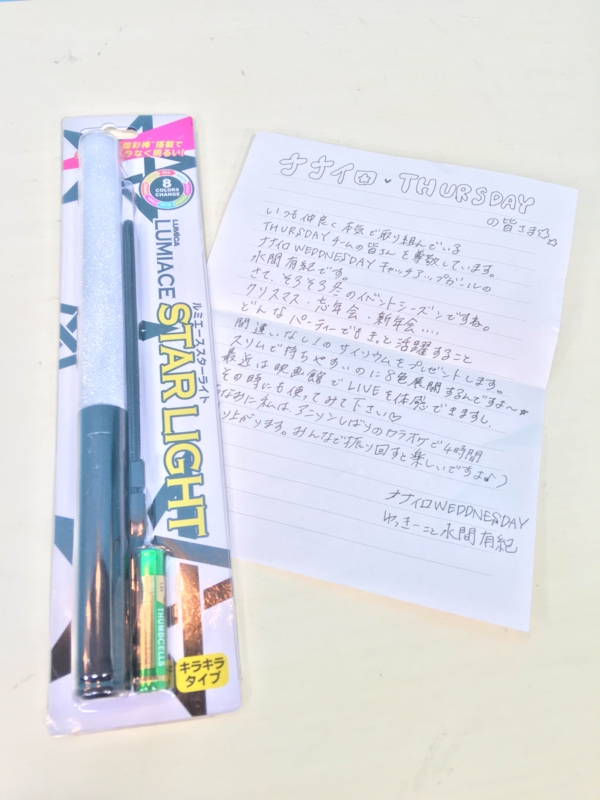 搭載で
ラなく明るい!
8
COLORS
CHANGE
LUMICA
LUMIACE
ルミエーススターライト
STAR LIGHT
THUMBCELLS
キラキラ
タイプ
ナナイロ・THURSDAY
の皆さま☆☆
いつも仲良く本気で取り組んでいる
THURSDAYチームの皆さんを尊敬しています。
ナナイロWEDDNESDAY キャッチアップガールの
永間有紀です。
さて、そろそろ冬のイベントシーズンですね。
クリスマス・忘年会・新年会....
どんなパーティーでもきっと活躍すること
間違いなし!のサイリウムをプレゼントします。
スリムで持ちやすいのに8色展開するんですよ〜★
最近は映画館でLIVEを体感できますし、
その時にも使ってみて下さい♡
なみに私は、アニソンしばりのカラオケで4時間
り上がります。みんなで振り回すと楽しいですよ♪)
ナナイロWEDDNESDAY
ゆっきーこと永間有紀